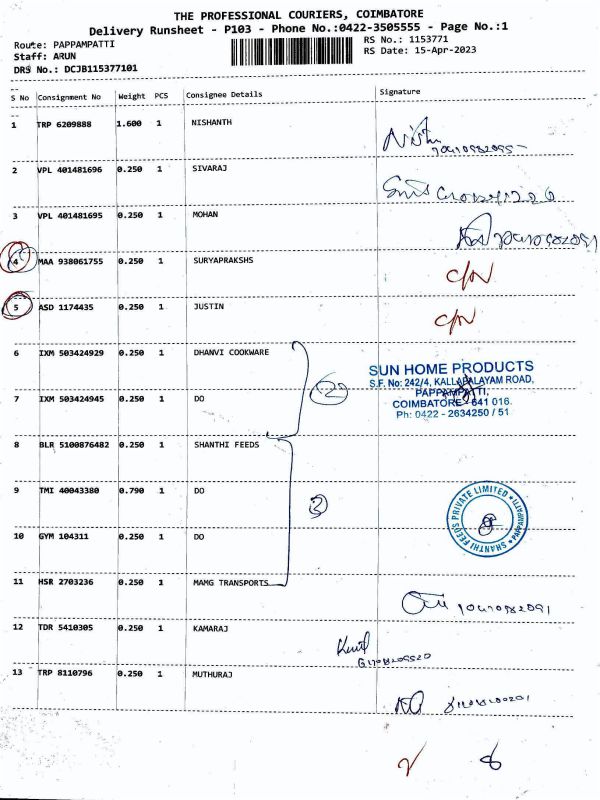 THE PROFESSIONAL COURIERS, COIMBATORE
Delivery Runsheet - P103 - Phone No.:0422-3505555 - Page No.:1
Route: PAPPAMPATTI RS No.: 1153771
Staff: ARUN RS Date: 15-Apr-2023
DRS No.: DCJB115377101
S No Consignment No Weight PCS Consignee Details Signature
1 TRP 6209888 1.600 1 NISHANTH
2 VPL 401481696 0.250 1 SIVARAJ
3 VPL 401481695 0.250 1 MOHAN
4 MAA 938061755 0.250 1 SURYAPRAKSHS C/N
5 ASD 1174435 0.250 1 JUSTIN C/N
6 IXM 503424929 0.250 1 DHANVI COOKWARE
SUN HOME PRODUCTS
S.F. No: 242/4, KALLAPALAYAM ROAD,
PAPPAMPATTI,
COIMBATORE - 641 016.
Ph: 0422 - 2634250 / 51
2
7 IXM 503424945 0.250 1 DO
8 BLR 5100876482 0.250 1 SHANTHI FEEDS
9 TMI 40043380 0.790 1 DO
3
SHANTHI FEEDS PRIVATE LIMITED * PAPPAMPATTI *
10 GYM 104311 0.250 1 DO
11 HSR 2703236 0.250 1 MAMG TRANSPORTS
12 TDR 5410305 0.250 1 KAMARAJ
13 TRP 8110796 0.250 1 MUTHURAJ
2 8